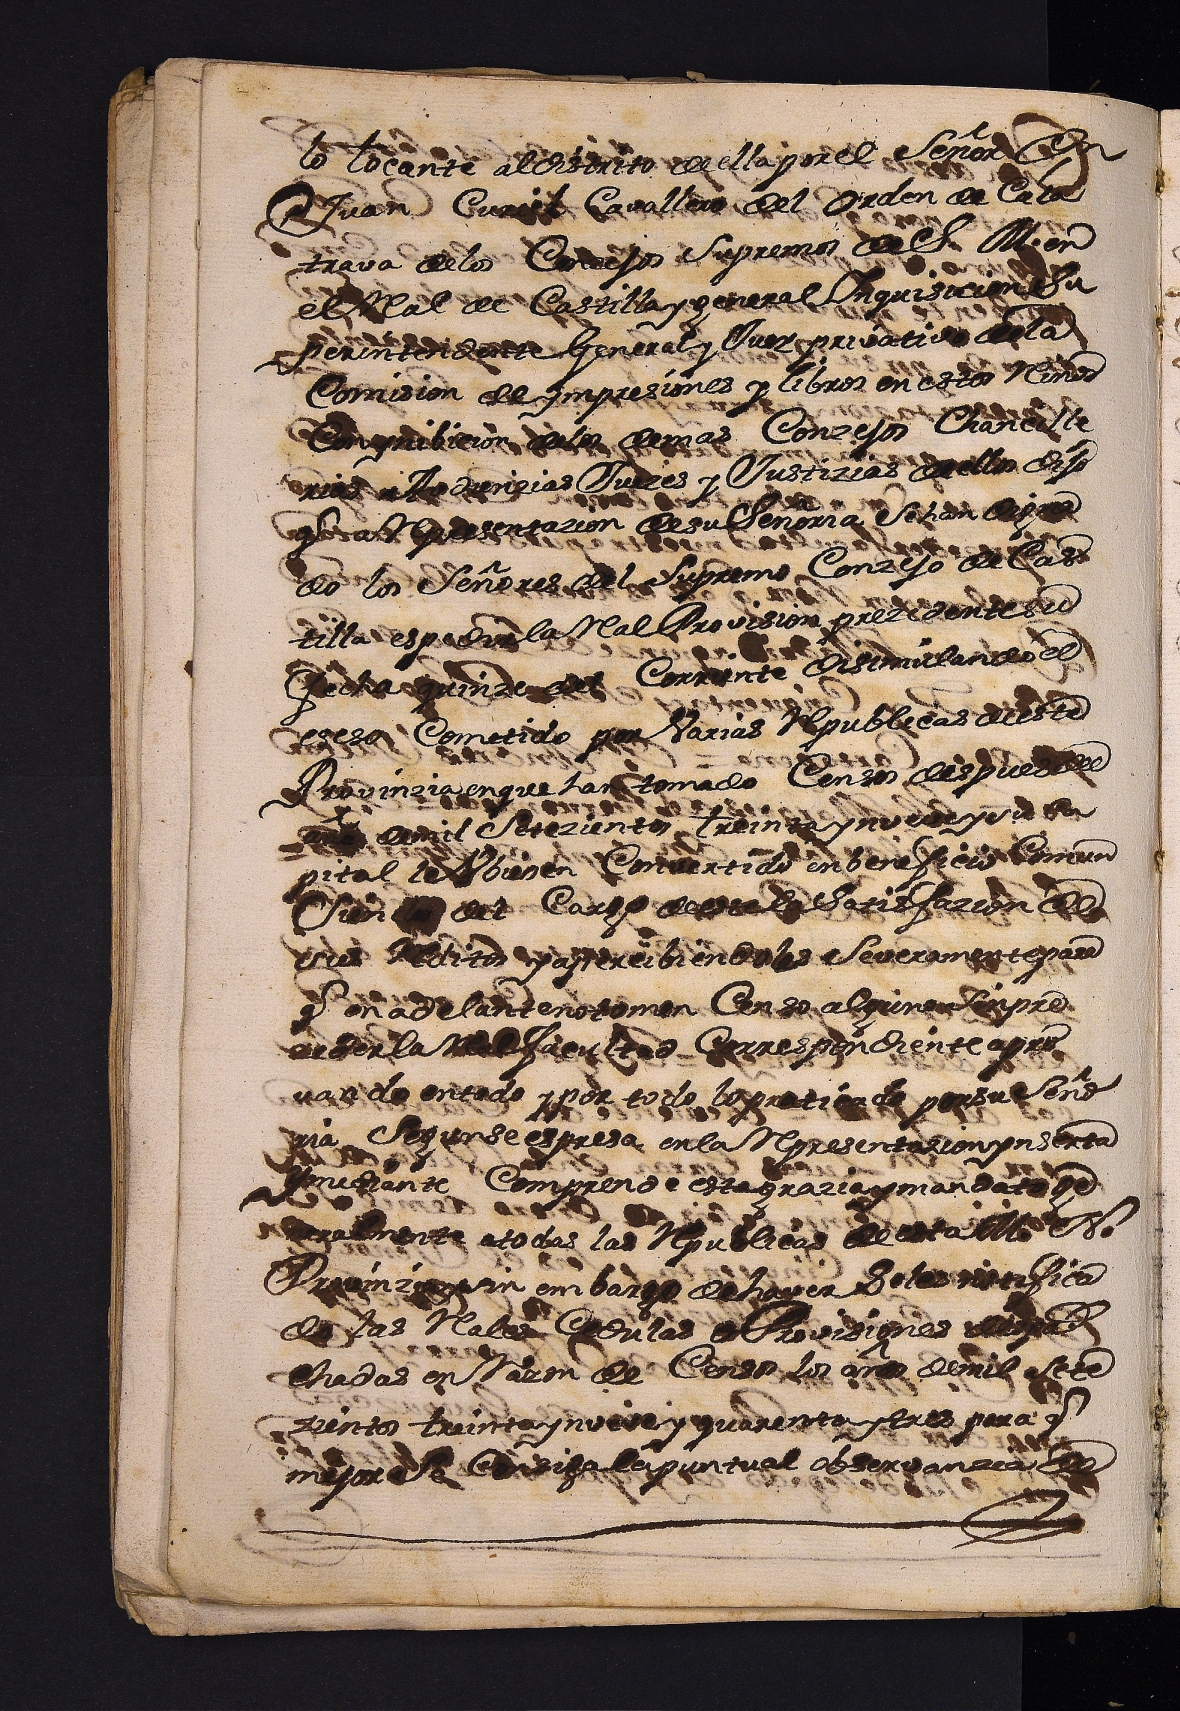 lo tocante al distrito de ella por el Señor Dn
Juan Curiel Cavallero del Orden de Cala
trava de los Consejos Supremos de S. M. en
el Rl de Castilla y general Inquisicion Su
perintendente General y Juez privativo de la
Comision de ympresiones y libros en estos Rinos
Conynibicion de los demas Conzejos Chancille
rias Audienzias Juezes y Justizias de ellos dijo
qe a Rpresentazion de su Señoria Sehan digna
do los Señores del Supremo Conzejo de Cas
tilla espedir la Ral Provision prezedente su
fecha quinze del Corriente disimulando el
eseso Cometido por Varias Rpublicas de esta
Provinzia en que han tomado Censos despues del
año de mil Setezientos treinta y nueve y su Ca
pital le Vbiesen Convertido en beneficio Comun
Siendo del Cargo de este la Satisfazion de
sus Rditos y apercibiendoles Severamente para
qe en adelante no tomen Censo alguno Sin pre
zeder la Ral facultad Correspondiente apro
vando en todo y por todo lo praticado por su Seño
ria Segun se espresa en la Rpresentazion ynserta
Ymediante Comprende esta grazia y mandato ge
neralmente a todas las Rpublicas de esta M. N.
Provinzia sin embargo de haver Seles notifica
do las Rales Cedulas o Provisiones despa
chadas en Razon de Censos los años de mil sete
zientos treinta y nueve y quarenta y tres para qe
mejor Se Consiga la puntual observanzia de